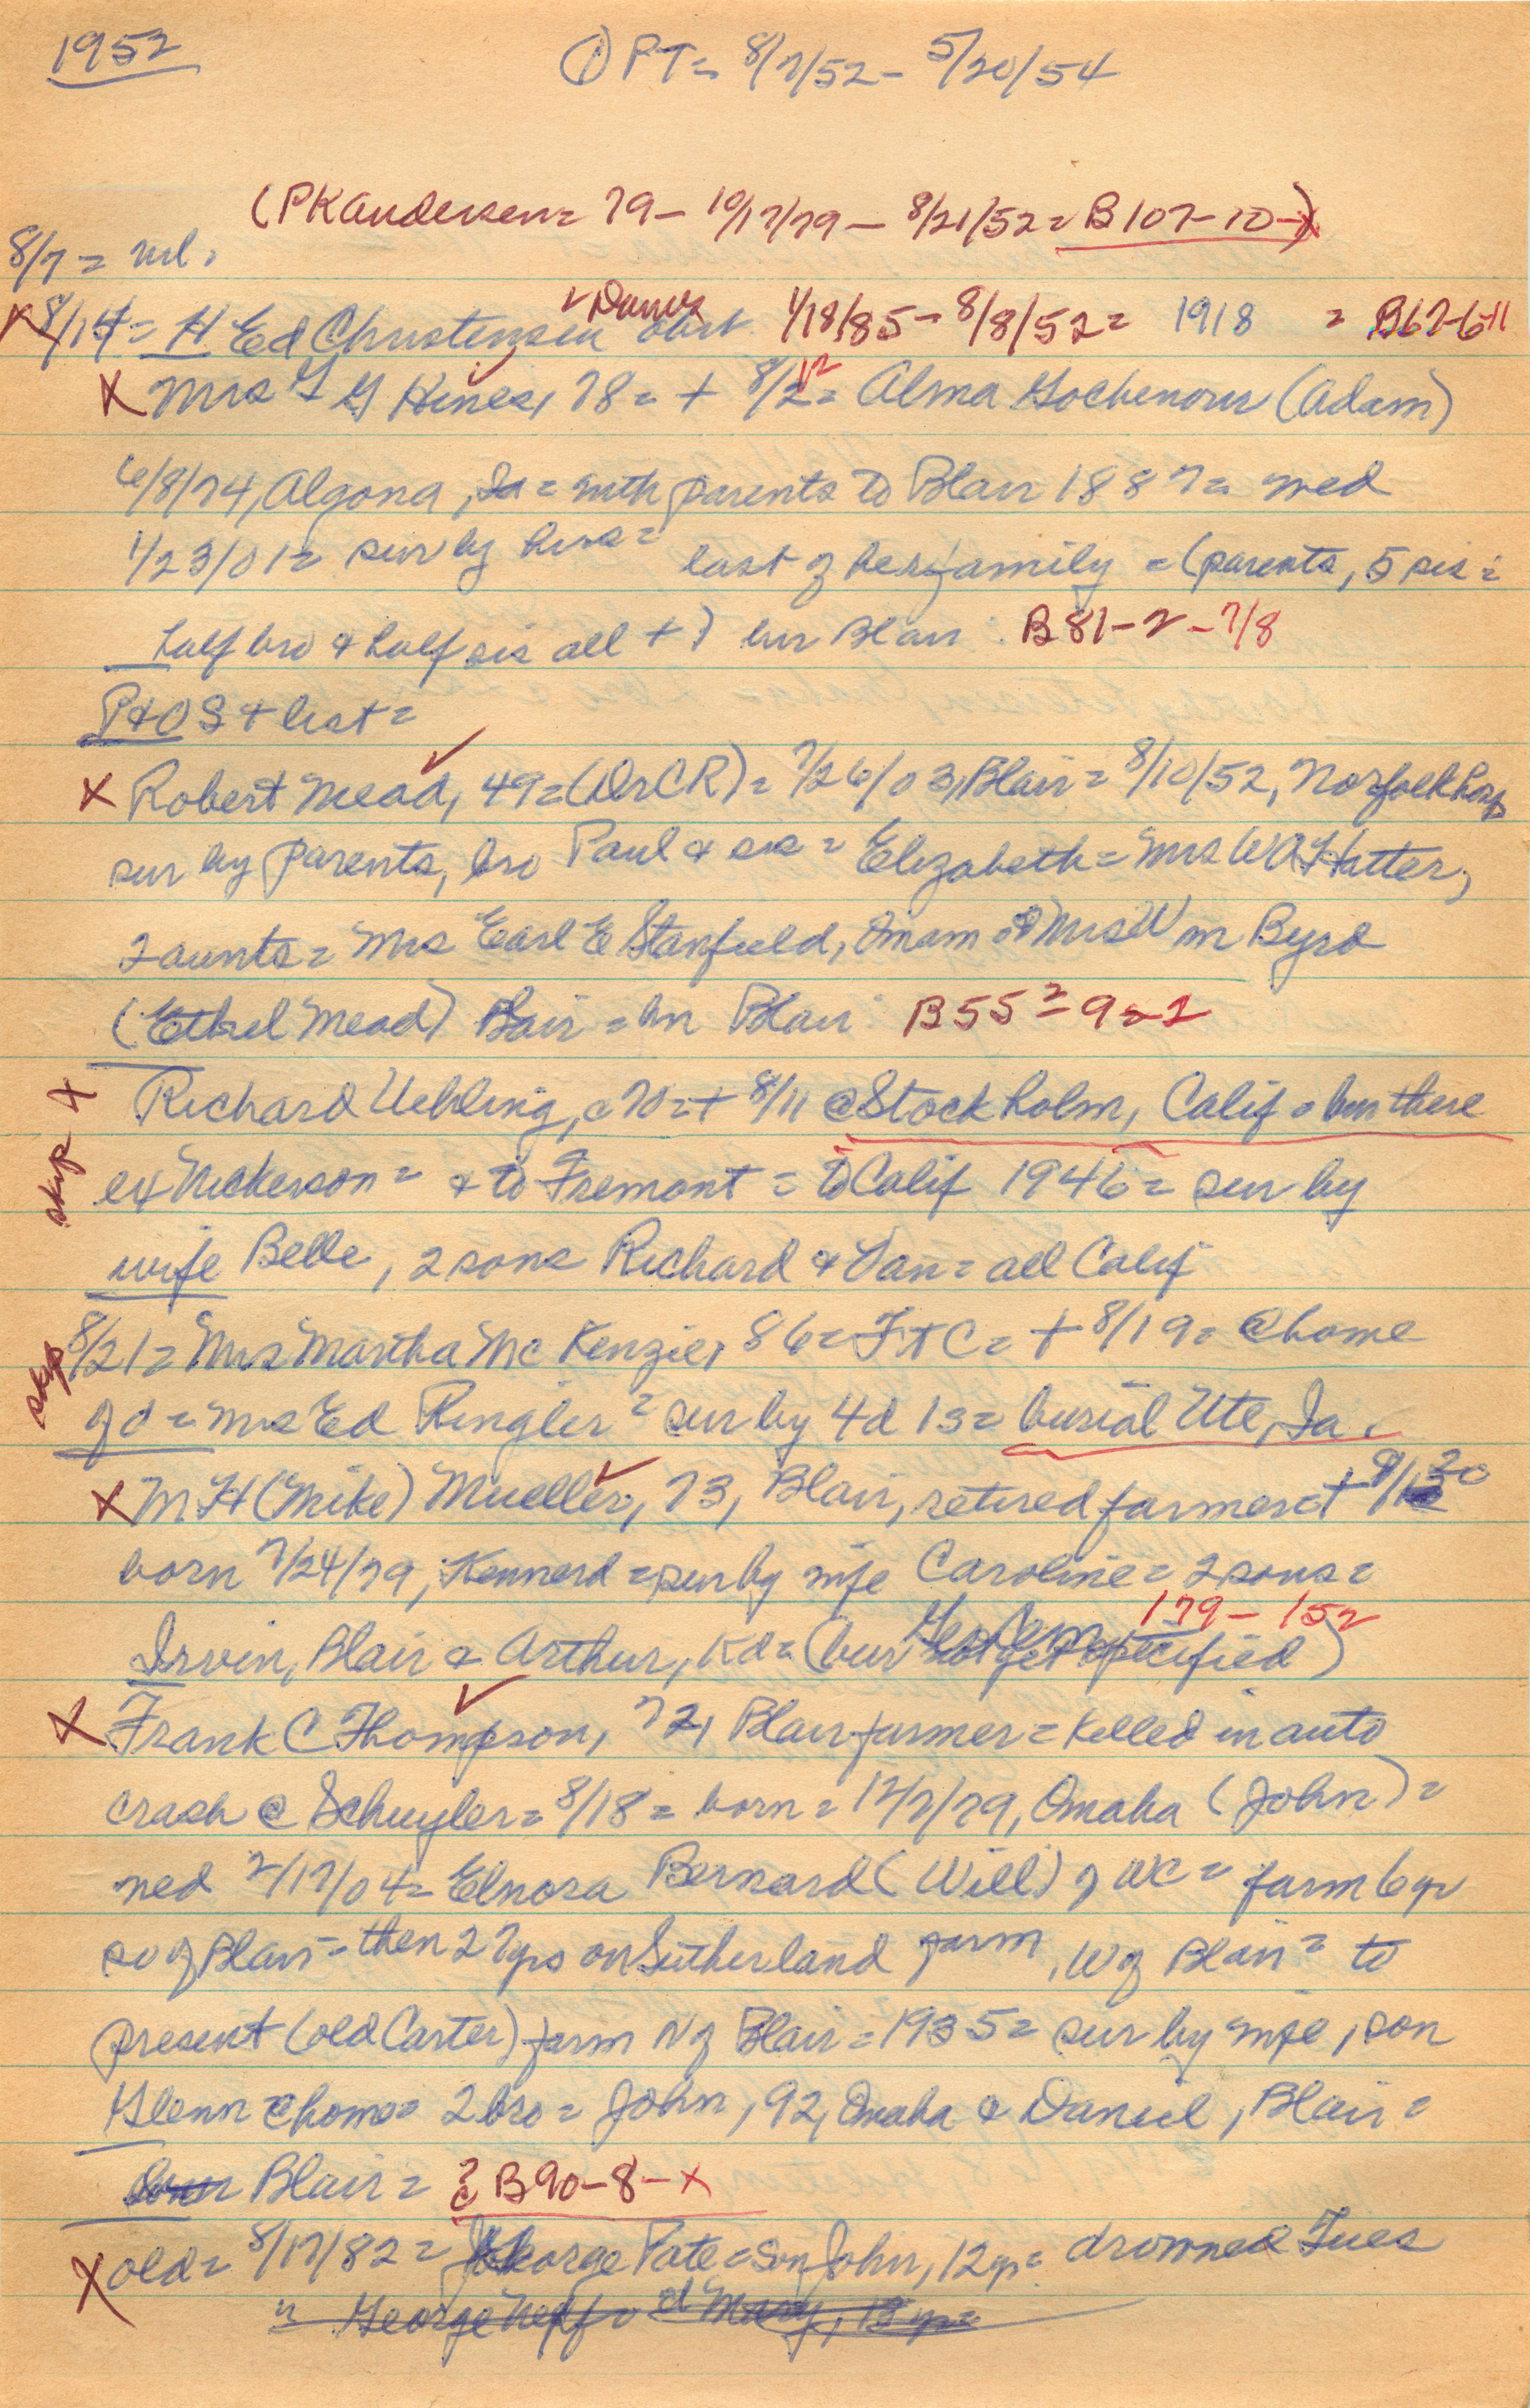 1952
① PT = 8/7/52 - 5/20/54
(PK Andersen = 79 - 10/17/79 - 8/21/52 = B107-10-X)
8/7 = nil.
X 8/14 = H Ed Christensen ✓ Danes obit 1/18/85 - 8/8/52 = 1918 = B67-6-11
X Mrs G Hines, 78 = + 8/12 = Alma Gochenour (Adam)
6/8/74, Algona, Ia = with parents to Blair 1887 = med
1/23/01 = sur by hus = last of her family = (parents, 5 sis =
half bro & half sis all +) bur Blair : B81-2-7/8
P&OS + list =
X Robert Mead, 49 = (Dr CR) = 7/26/03, Blair = 8/10/52, Norfolk hosp
sur by parents, bro Paul & sis = Elizabeth = Mrs WA Hatter,
2 aunts = Mrs Earl E Stanfield, Omam & Mrs Wm Byrd
(Ethel Mead) Blair = bur Blair B55-9-1
skip X Richard Uehling, c70 = + 8/11 @ Stockholm, Calif = bur there
ex Nickerson = & to Fremont = to Calif 1946 = sur by
wife Belle, 2 sons Richard & Dan = all Calif
skip 8/21 = Mrs Martha McKenzie, 86 = Ft C = + 8/19 = @ home
of d = Mrs Ed Ringler = sur by 4d 1s = burial Ute, Ia.
X M H (Mike) Mueller, 73, Blair, retired farmer + 8/20
born 7/24/79, Kennard = sur by wife Caroline = 2 sons =
179 - 152
Irvin, Blair & Arthur, Kd = (bur not yet specified)
X Frank C Thompson, 72, Blair farmer = killed in auto
crash @ Schuyler = 8/18 = born = 12/7/79, Omaha (John) =
med 2/17/04 = Elnora Bernard (Will) of WC = farm 6 yr
so of Blair = then 27 yrs on Sutherland farm, W of Blair = to
present (old Carter) farm N of Blair = 1935 = sur by wife, son
Glenn @ home = 2 bro = John, 92, Omaha & Daniel, Blair =
bur Blair = ? B90-8-X
X old = 8/17/82 = George Pate = son John, 12 yr = drowned Tues
" George Neff = d Mary, yr =